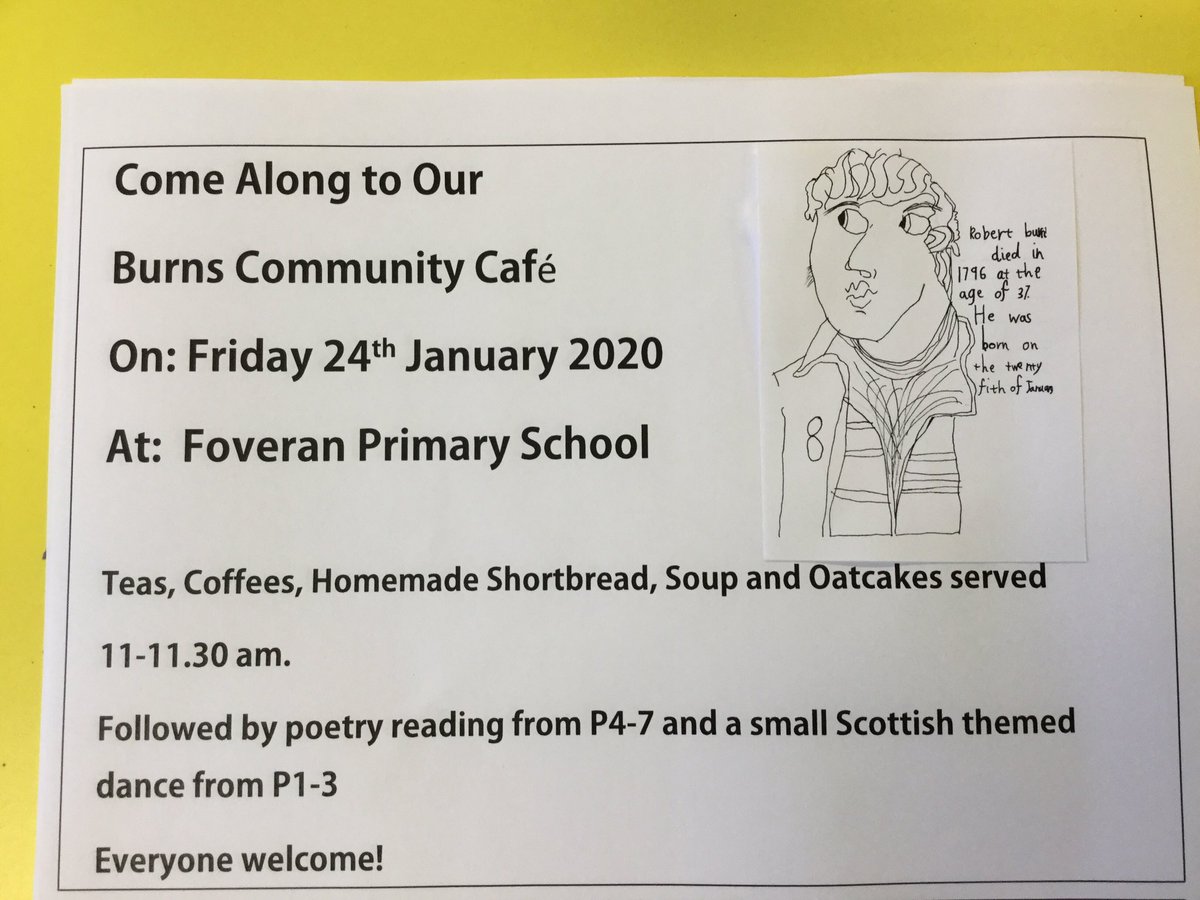 Come Along to Our
Burns Community Café
On: Friday 24th January 2020
At: Foveran Primary School
Robert
died in
1796 at the
age of 37.
He was
born on
the twenty
fith of
Teas, Coffees, Homemade Shortbread, Soup and Oatcakes served
11-11.30 am.
Followed by poetry reading from P4-7 and a small Scottish themed
dance from P1-3
Everyone welcome!